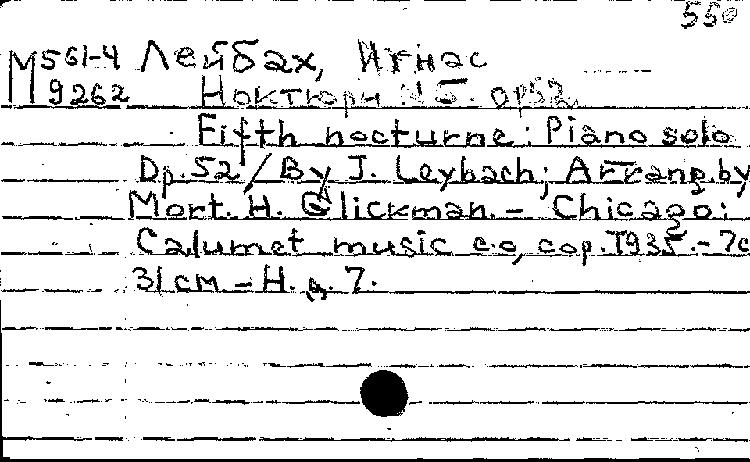 550
М561-4 Лейбах, Игнас
9262 Ноктюрн №5. op52
Fifth nocturne: Piano solo
Op.52 / By J. Leybach; Arrang.by
Mort. H. Glickman. – Chicago:
Calumet music co, cop. 1935. – 7c
31 см – Н. д. 7.